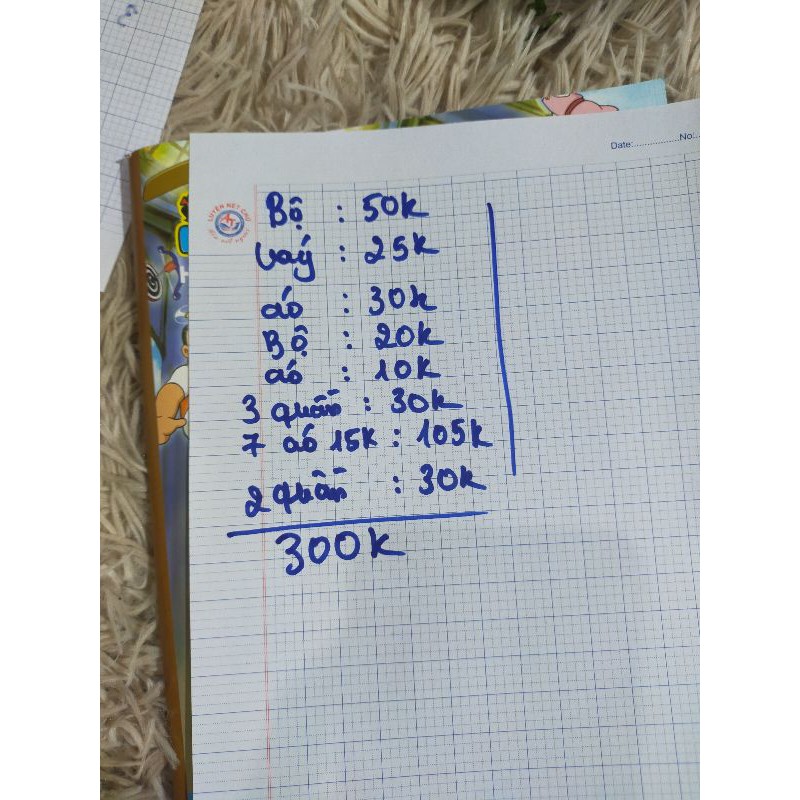 Date:..................No:...
LUYỆN NÉT CHỮ
Bộ : 50k
Váy : 25k
áo : 30k
Bộ : 20k
áo : 10k
3 quần : 30k
7 áo 15k : 105k
2 quần : 30k
300k